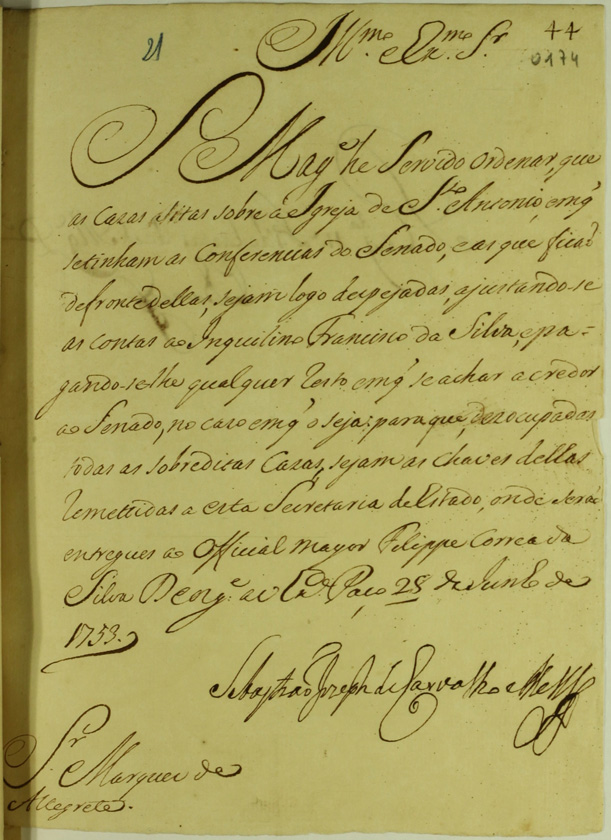 21
44
0174
Ill.mo e Ex.mo Sr.
S. Mag.e he Servido ordenar, que
as Cazas sitas sobre a Igreja de S.to Antonio, em q̃
se tinham as Conferencias do Senado, e as que ficaõ
defronte dellas, sejam logo despejadas, ajustando-se
as contas ao Inquilino Francisco da Silva, e pa=
gando-se-lhe qualquer resto em q̃ se achar acredor
ao Senado, no cazo em q̃ o seja: para que, dezocupadas
todas as sobreditas Cazas, sejam as chaves dellas
remettidas a esta Secretaria de Estado, onde será
entregues ao Official mayor Filippe Correa da
Silva. D.s g.e a V. Ex.a Paço 28 de Junho de
1753.
Sebastiaõ Joseph de Carvalho e Mello
Sr. Marquez de
Allegrete.